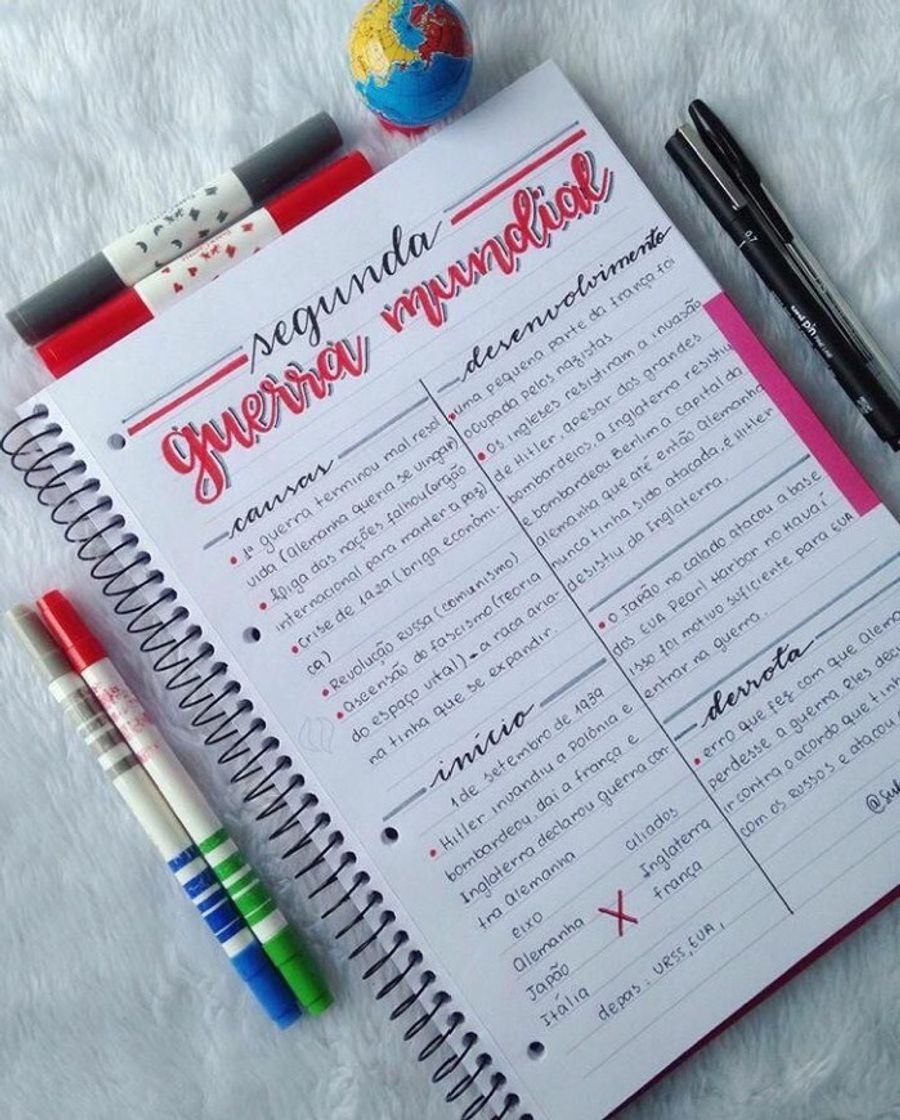 segunda
guerra mundial
causas
• 1ª guerra terminou mal resol
vida (Alemanha queria se vingar)
• Liga das nações falhou (orgão
internacional para manter a paz)
• crise de 1929 (briga econômi-
ca)
• Revolução Russa (comunismo)
• ascensão do fascismo (Teoria
do espaço vital) → a raça aria-
na tinha que se expandir.
início
1 de setembro de 1939
• Hitler invandiu a Polônia e
bombardeou, daí a frança e
Inglaterra declarou guerra con-
tra Alemanha
eixo aliados
Alemanha X Inglaterra
Japão frança
Itália
depas: URSS, EUA,
desenvolvimento
• uma pequena parte da frança foi
ocupada pelos nazistas
• os ingleses resistiram a invasão
de Hitler, apesar dos grandes
bombardeios, a Inglaterra resistiu
e bombardeou Berlim a capital da
Alemanha que até então Alemanha
nunca tinha sido atacada, e Hitler
desistiu da Inglaterra.
• o Japão no calado atacou a base
dos EUA Pearl Harbor no Havaí
isso foi motivo suficiente para EUA
entrar na guerra.
derrota
• erro que fez com que Alem
perdesse a guerra. Eles deci
ir contra o acordo que tinh
com os Russos e atacou
pin
0.7